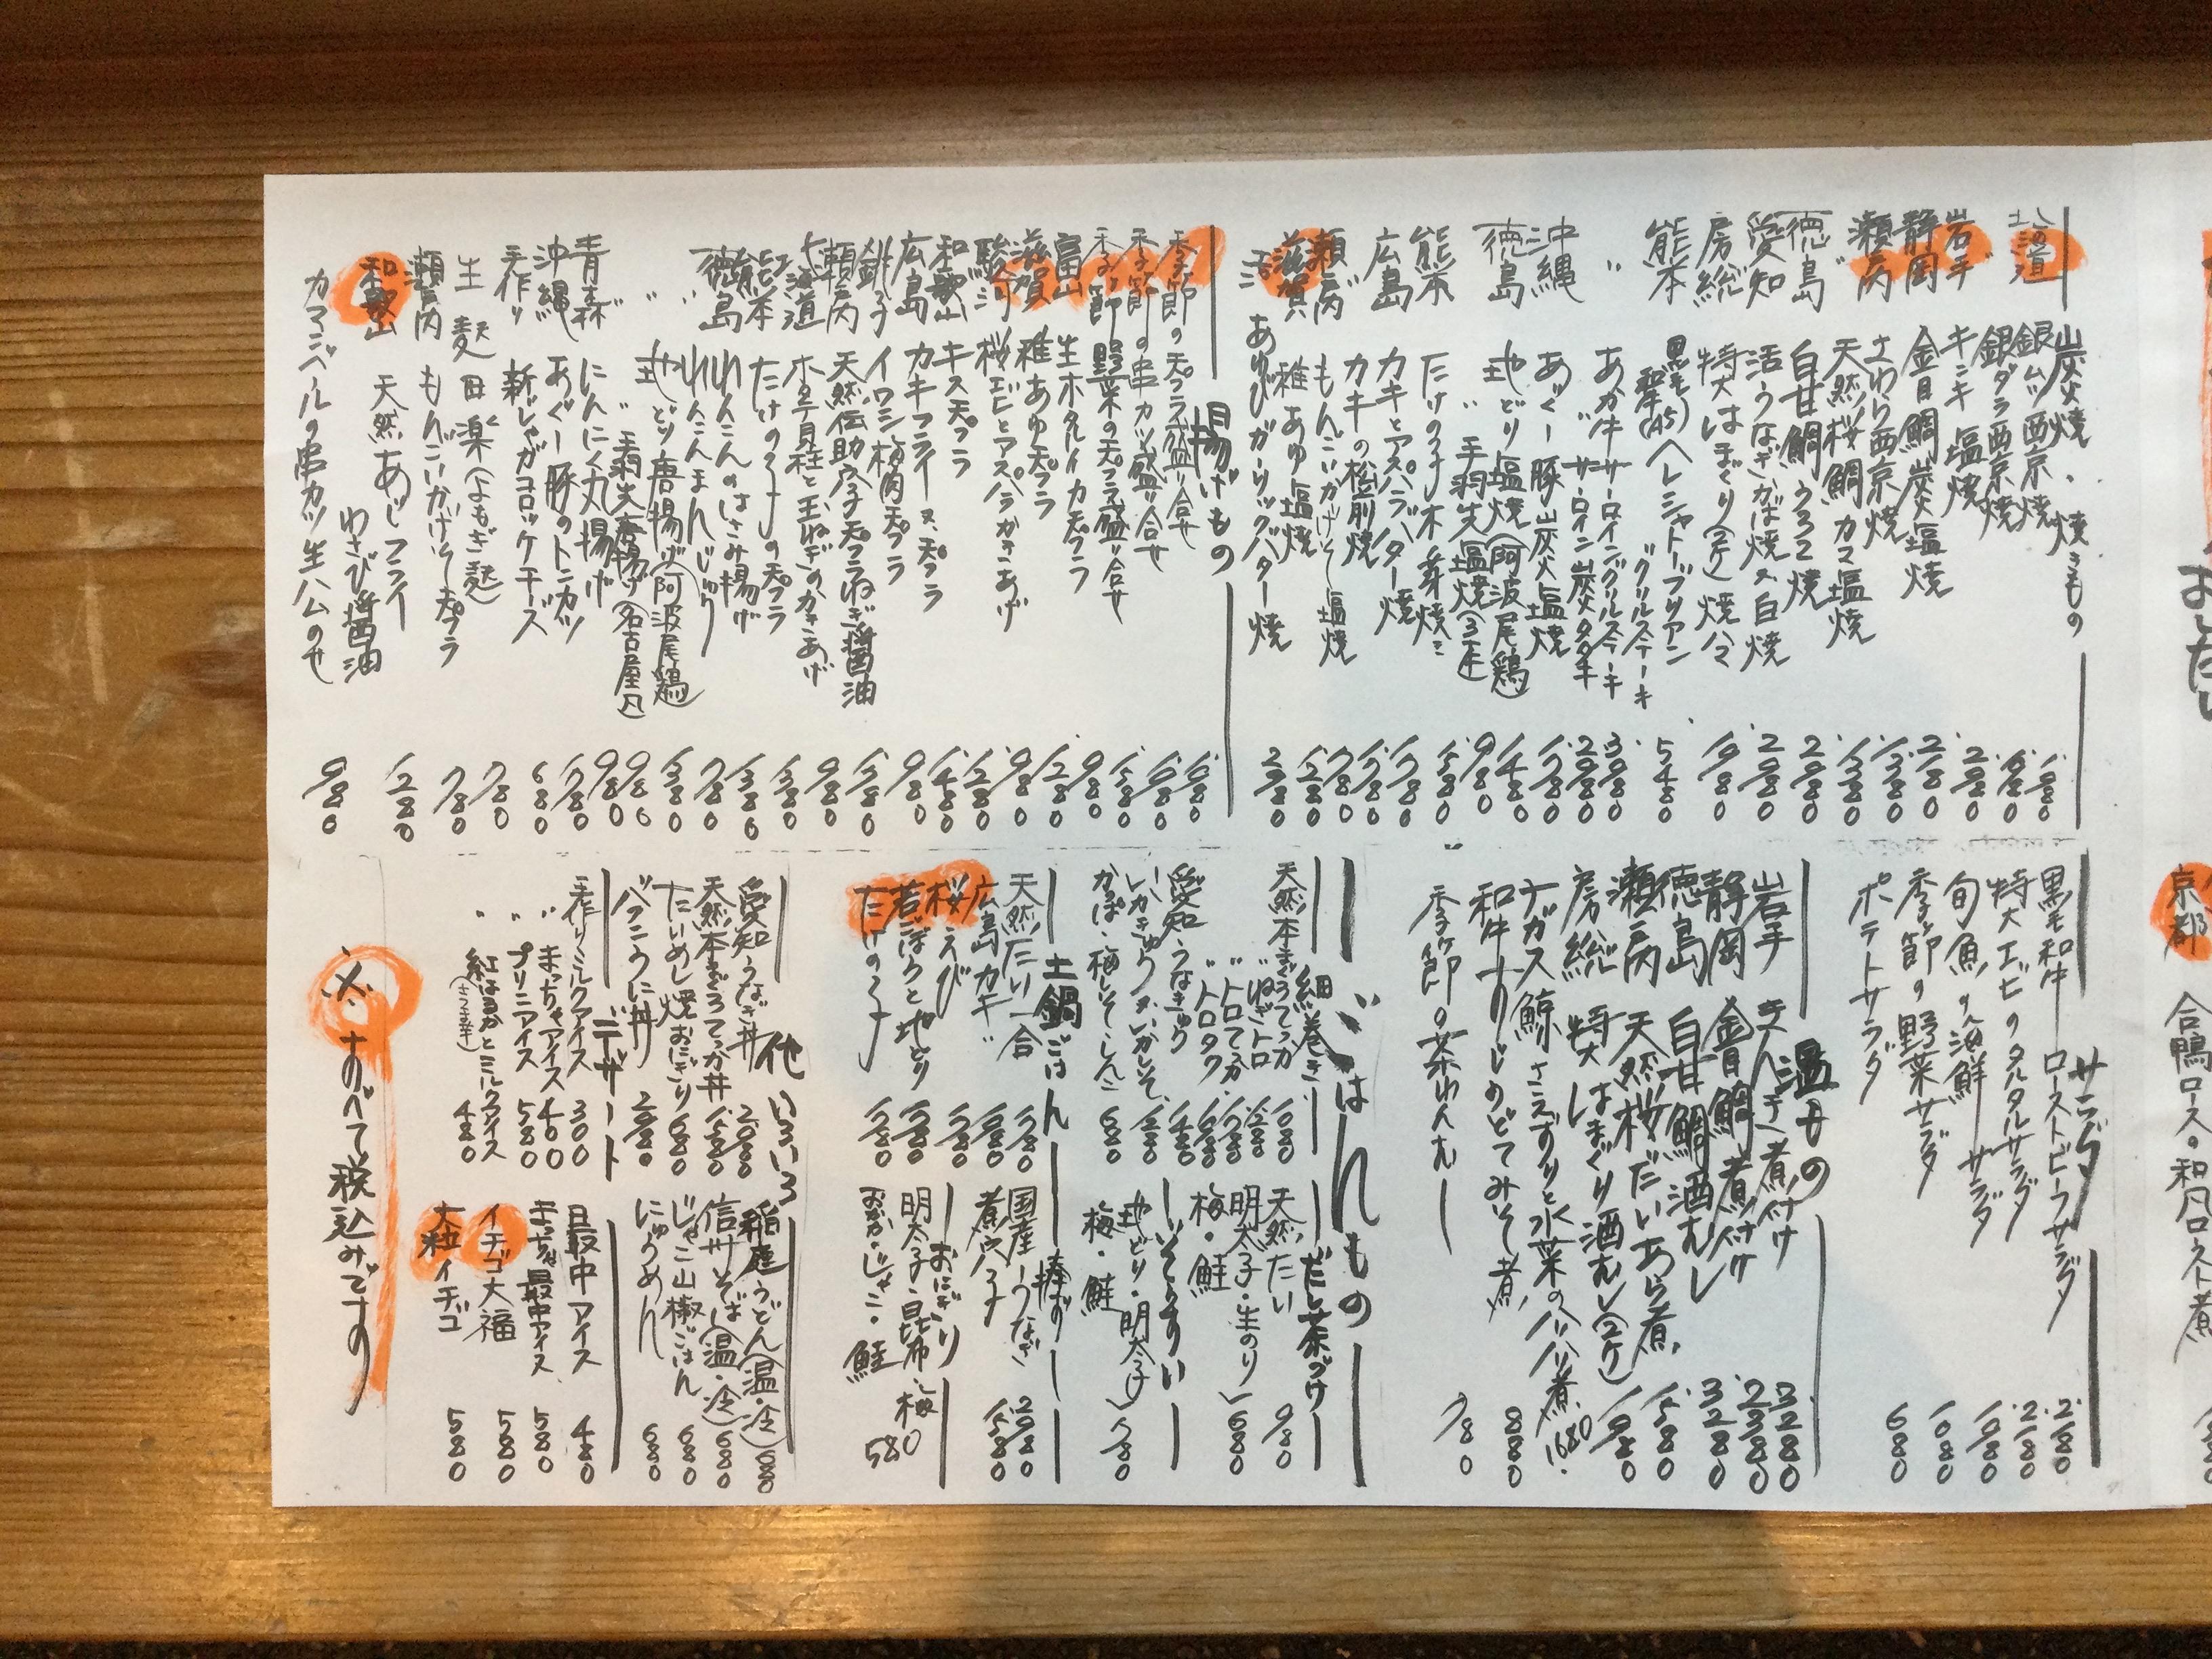 炭火焼・焼きもの
北海道 銀ムツ西京焼 1,980
銀ダラ西京焼 1,680
岩手 キンキ塩焼 2,980
静岡 金目鯛炭火塩焼 2,180
さわら西京焼 1,380
瀬戸内 天然桜鯛カマ塩焼 1,380
徳島 白甘鯛うろこ焼 2,980
愛知 活うなぎかば焼 又 白焼 2,980
房総 特大はまぐり(2ケ)焼 1,980
熊本 黒毛和牛(A5)ヘレシャトーブリアン
〃グリルステーキ 5,480
〃 あか牛サーロイングリルステーキ 3,080
〃 サーロイン炭火タタキ 2,980
沖縄 あぐー豚炭火塩焼 1,780
徳島 地どり塩焼(阿波尾鶏) 1,480
〃 手羽先塩焼(3本) 980
熊本 たけの子木ノ芽焼 1,580
広島 カキとアスパラバター焼 1,780
カキの松前焼 1,780
瀬戸内 もんごいかげそ塩焼 780
滋賀 稚あゆ塩焼 1,280
活 あわびガーリックバター焼 2,980
揚げもの
季節の天プラ盛り合せ 1,980
季節の串カツ盛り合せ 1,980
季節野菜の天プラ盛り合せ 1,580
富山 生ホタルイカ天プラ 980
滋賀 稚あゆ天プラ 1,280
駿河 桜エビとアスパラかきあげ 980
和歌山 キス天プラ 1,280
広島 カキフライ 又、天プラ 1,480
銚子 イワシ梅肉天プラ 980
瀬戸内 天然伝助穴子天プラねぎ醤油 1,580
北海道 ホタテ貝柱と玉ねぎのかきあげ 980
熊本 たけの子の天プラ 1,380
徳島 れんこんのはさみ揚げ 1,380
〃 れんこんまんじゅう 780
〃 地どり唐揚げ(阿波尾鶏) 1,380
〃 手羽先唐揚げ(名古屋風) 980
青森 にんにく丸揚げ 980
沖縄 あぐー豚のトンカツ 1,780
手作り 新じゃがコロッケチーズ 680
生麩田楽(よもぎ麩) 780
瀬戸内 もんごいかげそ天プラ 780
和歌山 天然あじフライ
わさび醤油 1,280
カマンベールの串カツ生ハムのせ 980
サラダ
黒毛和牛ローストビーフサラダ 2,180
特大エビのタルタルサラダ 2,180
旬魚の海鮮サラダ 1,980
季節の野菜サラダ 1,080
ポテトサラダ 680
温もの
岩手 キンキ煮付け 3,280
静岡 金目鯛煮付け 2,380
徳島 白甘鯛酒むし 3,280
瀬戸内 天然桜だいあら煮 1,580
房総 特大はまぐり酒むし(2ケ) 1,980
ナガス鯨さえずりと水菜のハリハリ煮 1680
和牛すじのどてみそ煮 880
季節の茶わんむし 780
ごはんもの
細巻き
天然本まぐろてっか 1,080
〃ねぎトロ 1,280
〃トロてっか 1,780
〃トロタク 1,680
愛知うなきゅう 1,480
いかきゅう 又、いかしそ 1,280
かっぱ・梅しそ・しんこ 680
だし茶づけ
天然たい 980
明太子・生のり
梅・鮭 680
ぞうすい
地どり・明太子
梅・鮭 780
土鍋ごはん
天然たい一合 1,780
広島カキ〃 1,980
桜えび 1,780
若ごぼうと地どり 1,780
たけの子 1,780
棒ずし
国産うなぎ 2,980
煮穴子 1,580
おにぎり
明太子・昆布・梅
おかか・じゃこ・鮭 580
他いろいろ
愛知うなぎ丼 2,980
天然本まぐろてっか丼 1,580
たいめし焼おにぎり 680
バフンうに丼 2,980
稲庭うどん(温・冷) 680
信州そば(温・冷) 680
じゃこ山椒ごはん 680
にゅうめん 680
デザート
手作りミルクアイス 300
〃 まっちゃアイス 400
〃 プリンアイス 580
紅はるかとミルクアイス
(さつま芋) 480
最中アイス 480
まっちゃ最中アイス 580
イチゴ大福 580
大粒イチゴ 580
※すべて税込みです
京都 合鴨ロース・和風ロースト煮